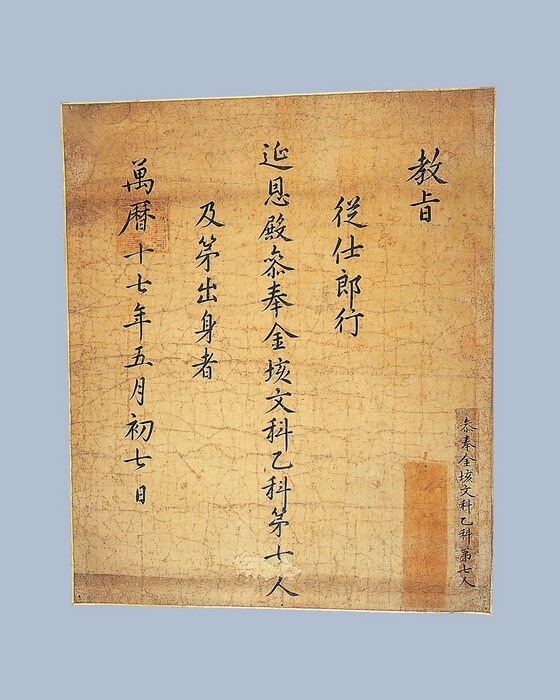 教旨
從仕郎行
延恩殿叅奉金垓文科乙科第十人
及第出身者
萬曆十七年五月初七日
叅奉金垓文科乙科第七人